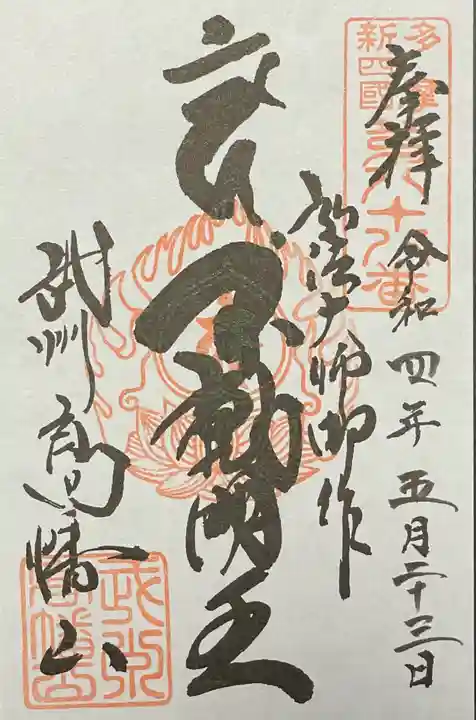 多摩
新四國
第八十八番
奉拝
令和四年五月二十三日
弘法大師御作
不動明王
武州
高幡山